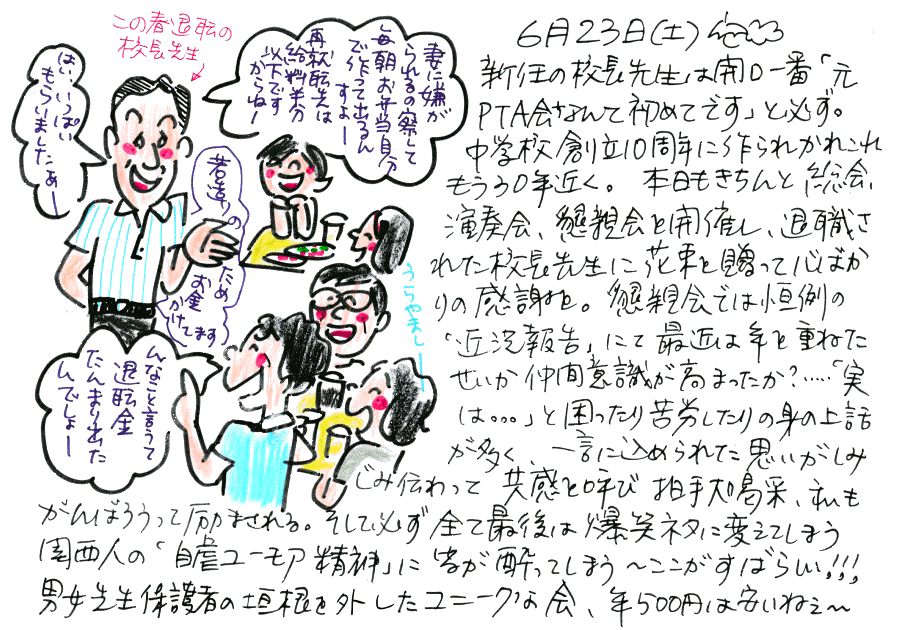 この春退転の
校長先生
はい、いっぱい
もらいましたぁー
妻に嫌が
られるの察して
毎朝お弁当自分
で作って出るん
ですよー
再就転先は
給料半分
以下です
からねー
若造りの
ため
お金
かけてます
うらやましー
んなこと言うて
退転金
たんまり出た
んでしょー
6月23日(土)
新任の校長先生は開口一番「元
PTA会なんて初めてです」と必ず。
中学校創立10周年に作られかれこれ
もう30年近く。本日もきちんと総会、
演奏会、懇親会と開催し、退職さ
れた校長先生に花束を贈って心ばか
りの感謝を。懇親会では恒例の
「近況報告」にて最近は年を重ねた
せいか仲間意識が高まったか?……「実
は。。。」と困ったり苦労したりの身の上話
が多く、一言に込められた思いがしみ
じみ伝わって共感を呼び拍手大喝采、私も
がんばろうって励まされる。そして必ず全て最後は爆笑ネタに変えてしまう
関西人の「自虐ユーモア精神」に皆が酔ってしまう〜ここがすばらしい!!!
男女先生保護者の垣根を外したユニークな会、年500円は安いねぇ〜